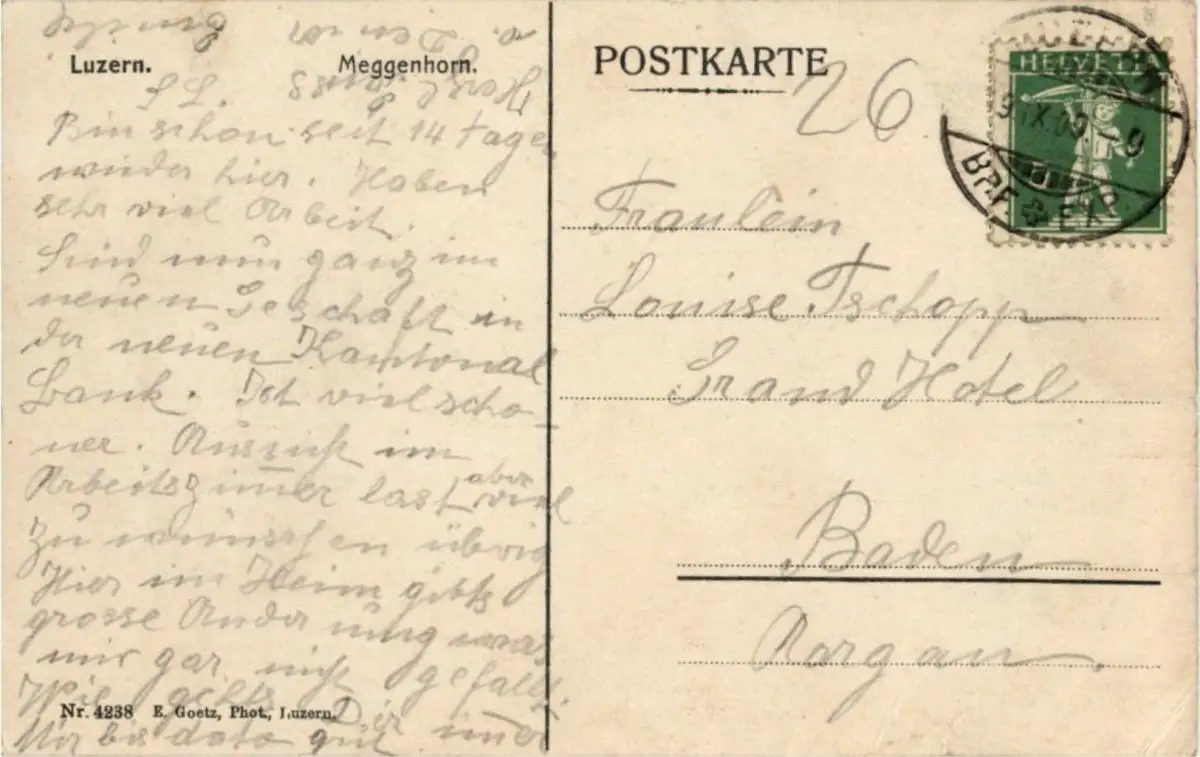 Luzern. Meggenhorn.
L L.
Bin schon seit 14 Tage
wieder hier. Haben
sehr viel Arbeit.
Sind nun ganz im
neuen Geschäft in
der neuen Kantonal
bank. Ist viel schö-
ner. Aussicht im
Arbeitszimmer lasst aber viel
zu wünschen übrig
Hier im Heim gibts
grosse Änderung was
mir gar nicht gefällt.
Wie gehts Dir immer
Mir bis dato gut
Nr. 4238 E. Goetz, Phot., Luzern.
POSTKARTE
26
HELVETIA
LUZERN
9.IX.09.-9
BRF. EXP.
Fraulein
Louise Tschopp
Grand Hotel
Baden
Aargau.